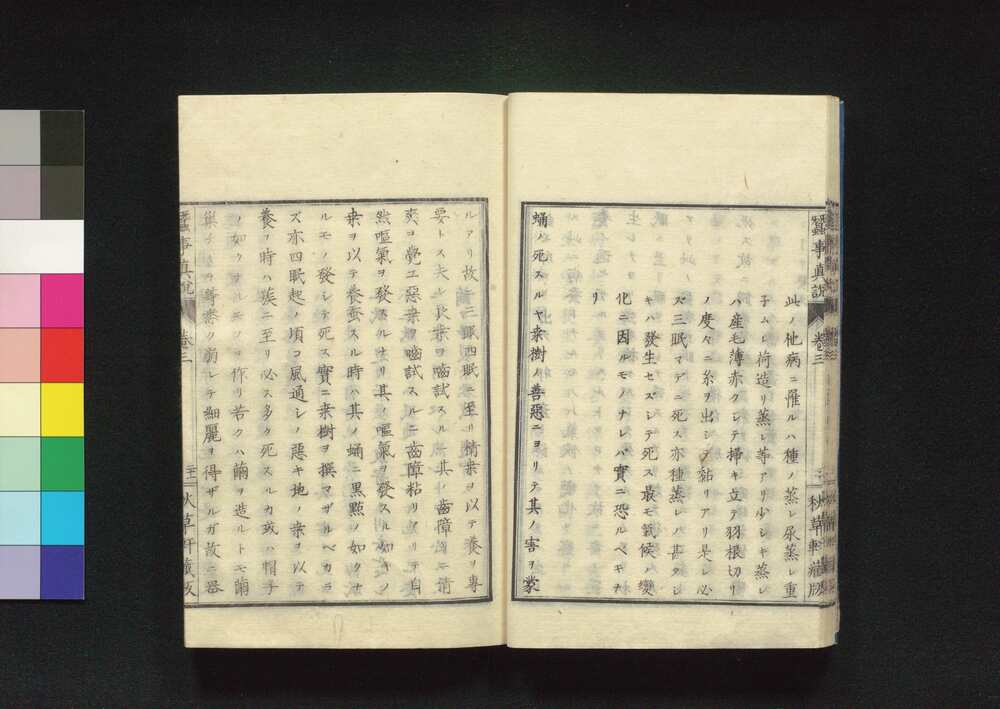 蠶事真說 卷三 秋草軒藏版
此ノ杫病ニ罹ルハ種ノ蒸レ尿蒸レ重
子ムレ荷造リ蒸レ等アリ少シキ蒸レ
ハ產毛薄赤クシテ掃キ立テ羽根切リ
ノ度々ニ糸ヲ出シテ黏リアリ是レ必
ズ三眠マデニ死ス亦種蒸レバ甚タシ
キハ發生セズシテ死ス最モ氣候ノ變
化ニ因ルモノナレバ實ニ恐ルベキナ
リ
蛹ノ死スルヤ桒樹ノ善惡ニヨリテ其ノ害ヲ蒙
ルアリ故ニ三眠四眠ニ至リ情桒ヲ以テ養フ專
要トス夫レ良桒ヲ嚙試スルニ其ノ齒障モ清
爽ヨ覺エ惡桒ヲ嚙試スルニ齒障粘リアリテ自
然嘔氣ヲ發スルナリ其ノ嘔氣ヲ發スル如キノ
桒ヲ以テ養蚕スル時ハ其ノ蛹ニ黒㸃ノ如クナ
ルモノ發シテ死ス實ニ桒樹ヲ撰マザルベカラ
ズ亦四眠起ノ頃ヨ風通シノ惡キ地ノ桒ヲ以テ
養フ時ハ簇ニ至リ必ス多タ死スルカ或ハ帽子
ノ如クナルモノヲ作リ若クハ繭ヲ造ルトモ繭
蠶事真說 卷三 秋草軒藏版